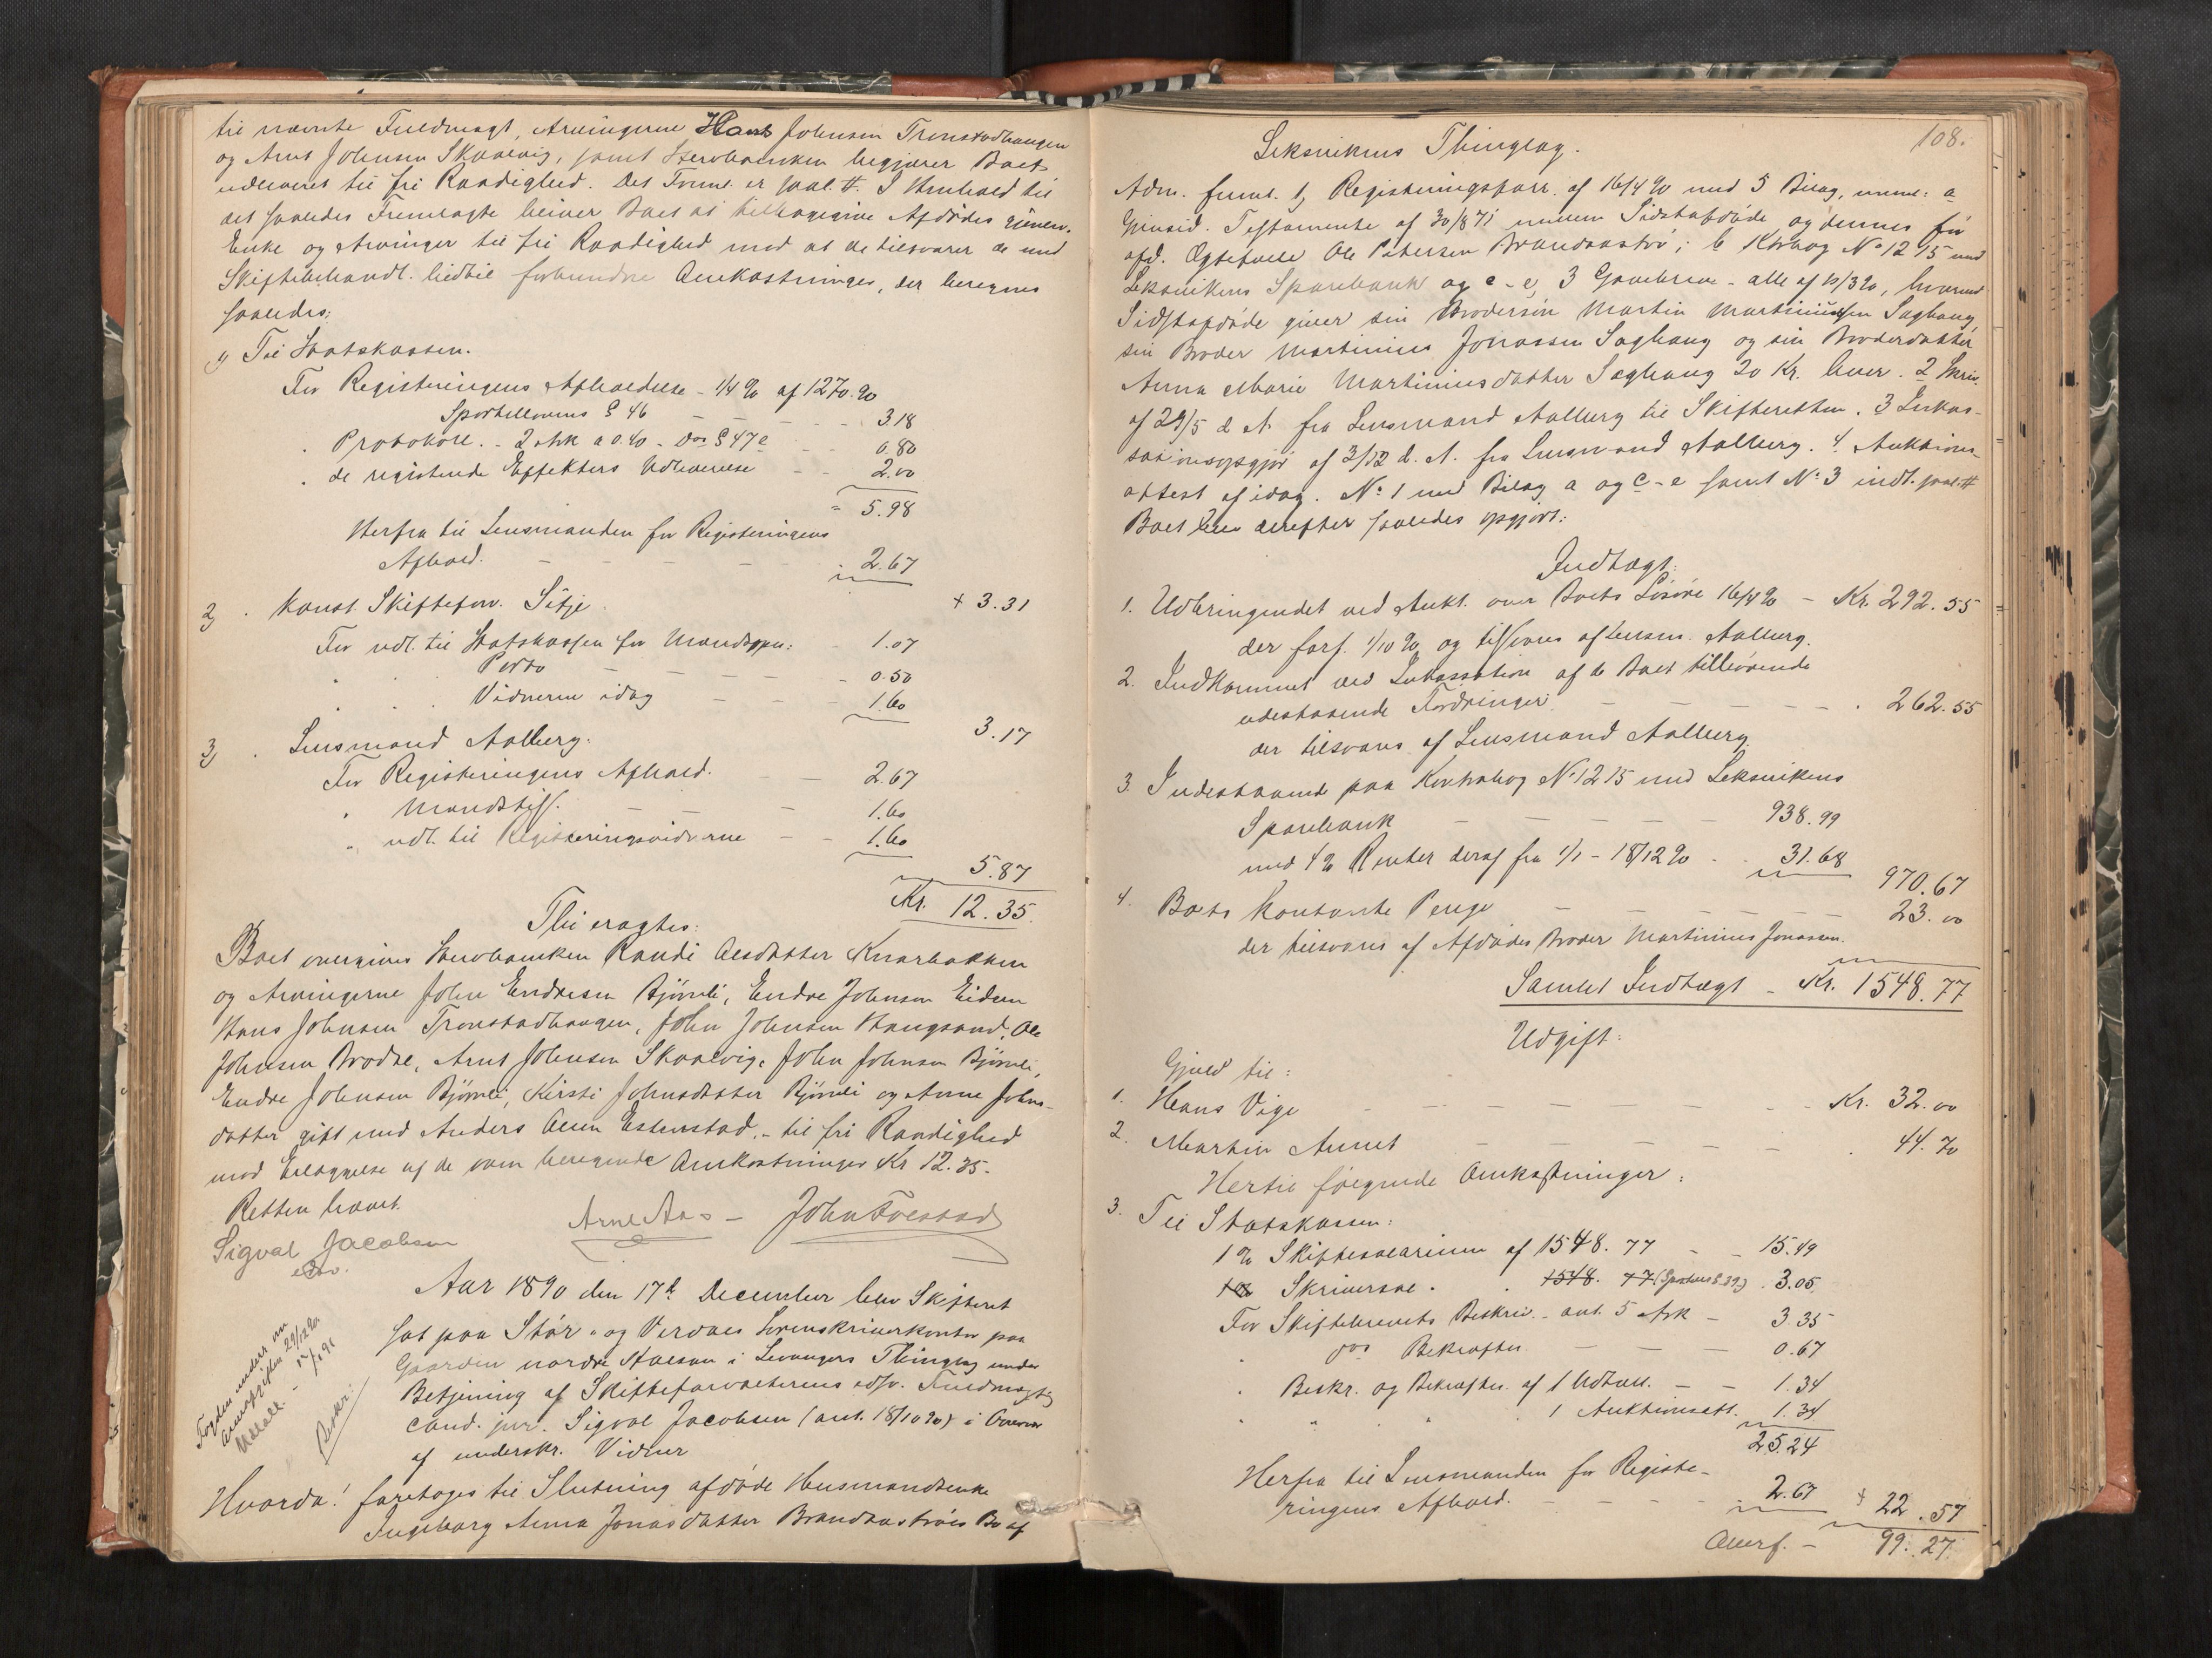 til nævnte Fuldmagt, Arvingerne Hans Johnsen Tronstadhaugen
og Arnt Johnsen Skaalvig, samt Stervboenken begjærer Boet
udleveret til fri Raadighed. Det Freml. er saal. #. I Henhold til
det saaledes Fremlagte bliver Boet at tilbagegive Afdødes gjenlev.
Enke og Arvinger til fri Raadighed mod at de tilsvarer de med
Skiftebehandl. hidtil forbundne Omkostninger, der beregnes
saaledes:
1) Til Statskassen.
For Registeringens Afholdelse - 1/4 % af 1270.90
Sportellovens § 46 - - - 3.18
" Protokoll. - 2 Ark a 0.40 - do § 47 e - 0.80
" de registrerede Effekters Udleverelse - - 2.00
= 5.98
Herfra til Lensmanden for Registeringens
Afhold. - - - - - ÷ 2.67
+ 3.31
2) " Konst. Skifteforv. Sitje.
For udl. til Statskassen for Mandsppn: - 1.07
" Porto - - - - 0.50
" " Vidnerne idag - - - 1.60
3.17
3) " Lensmand Aalberg.
For Registeringens Afhold. - - 2.67
" Mandstiss. - - - 1.60
" udl. til Registeringsvidnerne - - 1.60
5.87
Kr. 12.35.
Thi eragtes:
Boet overgives Stervboenken Randi Olsdatter Knarbakken
og Arvingerne John Endresen Bjørnli, Endre Johnsen Eidsen
Hans Johnsen Tronstadhaugen, John Johnsen Haugsand, Ole
Johnsen Brodal, Arnt Johnsen Skaalvig, John Johnsen Bjørnli,
Endre Johnsen Bjørnli, Kirsti Johnsdatter Bjørnli og Anne Johns-
datter gift med Anders Olsen Estenstad, - til fri Raadighed
mod Erlæggelse af de oven beregnede Omkostninger Kr 12.35.
Retten hævet.
Sigval Jacobsen
edsv.
Arne Aas - John Foestad
Aar 1890 den 17de December blev Skifteret
sat paa Stør- og Værdals Sorenskriverkontor paa
Gaarden nordre Stalsan i Levangers Thinglag under
Betjening af Skifteforvalterens edsv. Fuldmægtig
cand. jur. Sigval Jacobsen (ant. 18/10 90) i Overvær
af underskr. Vidner
Beskr:
Hvorda! foretages til Slutning afdøde Husmandsenke
Ingeborg Anna Jonasdatter Brandaastrøes Bo af
108.
Leksvikens Thinglag.
Adm. freml. 1, Registeringsforr. af 16/4 90 med 5 Bilag, nemml: a
Gjensid. Testamente af 30/8 71 mellem Sidstafdøde og dennes før
afd. Ægtefælle Ole Petersen Brandaastrø; b Ktrbog No 1215 med
Leksvikens Sparebank og c-e, 3 Gavebreve - alle af 10/3 90, hvorved
Sidstafdøde giver sin Brodersøn Martin Martiniussen Saghaug,
sin Broder Martinius Jonassen Saghaug og sin Broderdatter
Anna Marie Martiniusdatter Saghaug 20 Kr. hver. 2 Skriv.
af 29/5 d. A. fra Lensmand Aalberg til Skifteretten. 3 Inkas-
sationsopgjør af 3/12 d. A. fra Lensmand Aalberg. 4. Auktions-
attest af idag. No 1 med Bilag a og c-e samt No 3 indt. saal. #
Boet blev derefter saaledes opgjort:
Indtægt:
1. Udbringendet ved Aukt. over Boets Løsøre 16/4 90 - Kr. 292.55
der forf. 1/10 90 og tilsvares af Lensm. Aalberg.
2. Indkommet ved Inkassation af de Boet tilhørende
udestaaende Fordringer - - - - - " 262.55
der tilsvares af Lensmand Aalberg.
3. Indestaaende paa Kontrabog No 1215 med Leksvikens
Sparebank - - - - - 938.99
med 4 % Renter deraf fra 1/1 - 18/12 90 - - 31.68
970.67
4. Boets Kontante Penge - - - - - 23.00
der tilsvares af Afdødes Broder Martinius Jonassen.
Samlet Indtægt - Kr. 1548.77
Udgift:
Gjæld til:
1. Hans Vige - - - - - - Kr. 32.00
2. Martin Aunet - - - - - " 44.70
Hertil følgende Omkostninger:
3. Til Statskassen:
1 % Skiftesalarium af 1548.77 - - 15.49
Skriversal. " 1548.77 (Sportlens § 39) " 3.05
For Skiftebrevets Beskriv. - ant. 5 Ark - 3.35
" dos Bekræftn. - - - 0.67
" Beskr. og Bekræftn. af 1 Udtall. - - 1.34
" " " " 1 Auktionsatt. 1.34
25.24
Herfra til Lensmanden for Registe-
ringens Afhold. - - - - ÷ 2.67
+ 22.57
Overf. - 99.27.